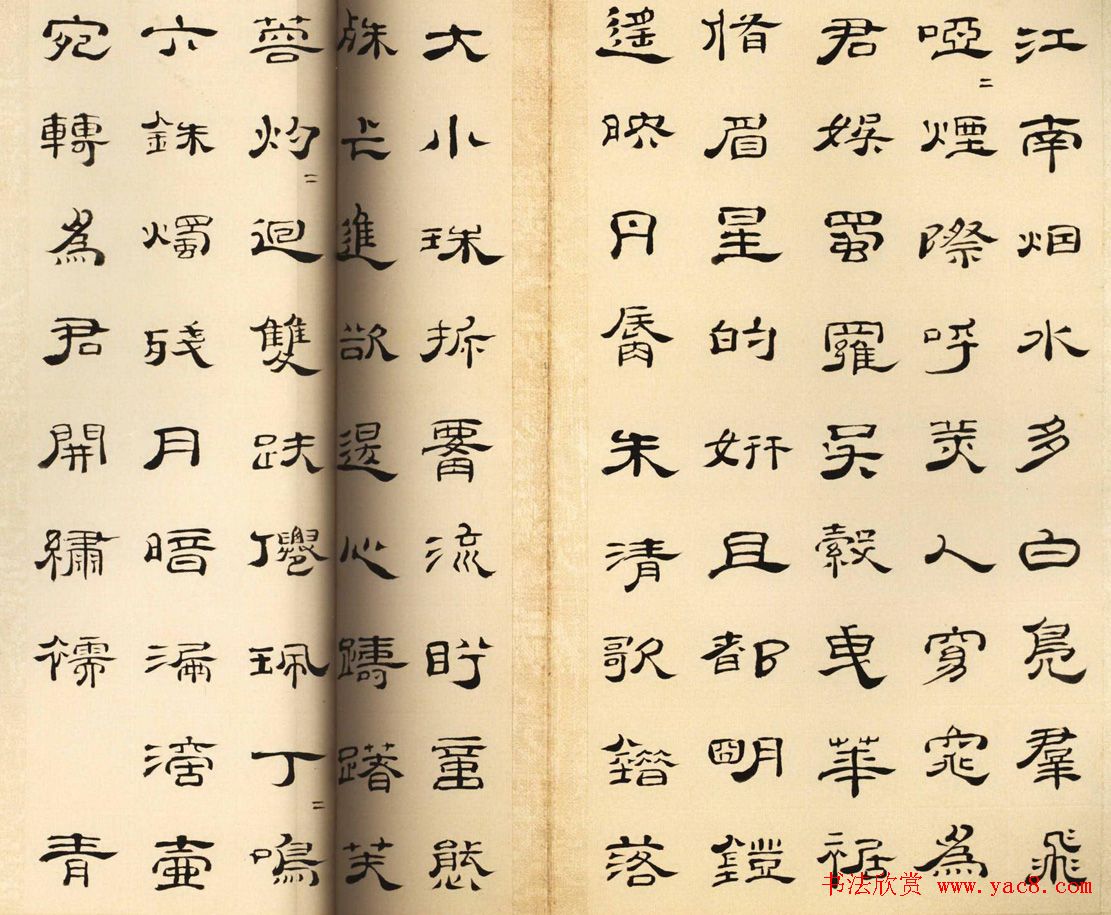 江南烟水多白鳧羣飛
啞〻煙際呼美人窈窕為
君娛蜀羅吴縠曳華裾
脩眉星的妍且都明鐙
遥映丹脣朱清歌錯落
大小珠折腰流眄態
殊乍進欲退心躊躇芙
蓉灼〻迴雙趺珮丁〻鳴
六銖燭殘月暗漏滴壺
宛轉為君開繡襦 青
书法欣赏 www.yac8.com